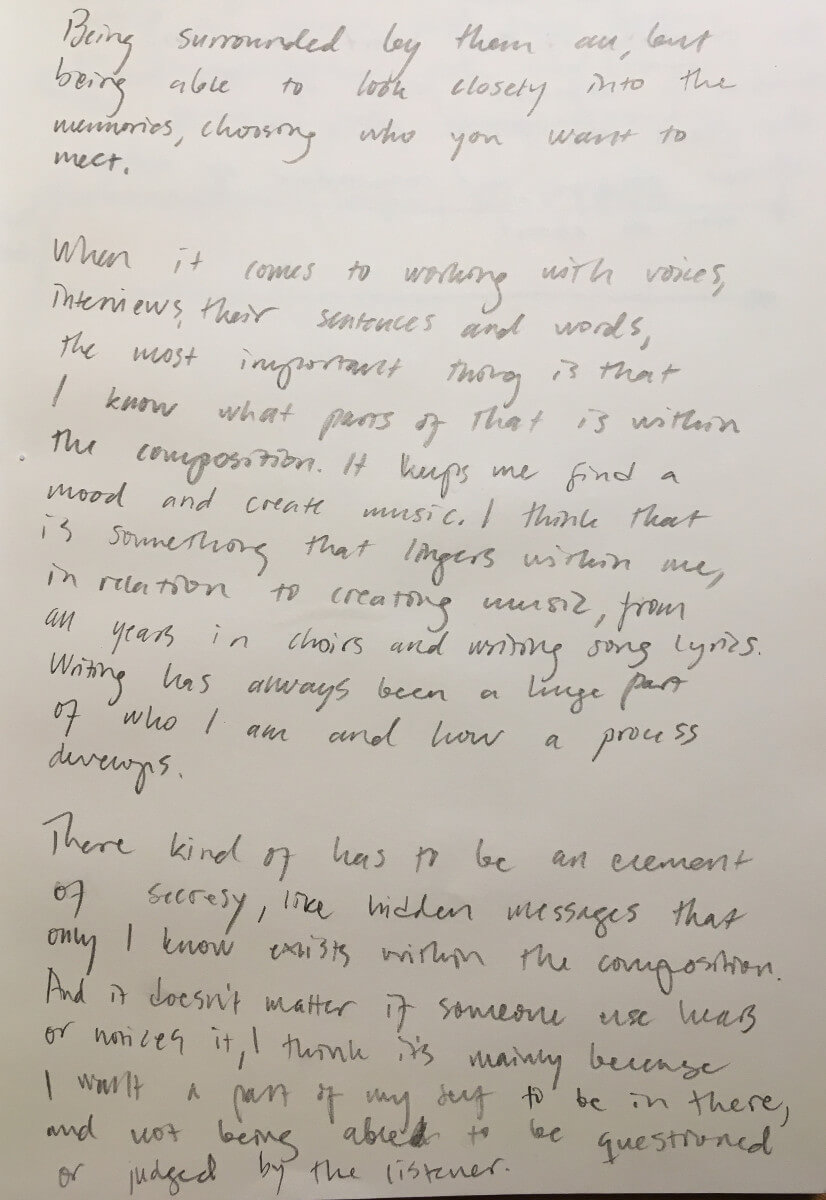 Being surrounded by them all, but
being able to look closely into the
memories, choosing who you want to
meet.
When it comes to working with voices,
interviews, their sentences and words,
the most important thing is that
I know what parts of that is within
the composition. It helps me find a
mood and create music. I think that
is something that lingers within me,
in relation to creating music, from
all years in choirs and writing song lyrics.
Writing has always been a huge part
of who I am and how a process
develops.
There kind of has to be an element
of secresy, like hidden messages that
only I know exists within the composition.
And it doesn't matter if someone else hears
or notices it, I think it's mainly because
I want a part of my self to be in there,
and not being able to be questioned
or judged by the listener.